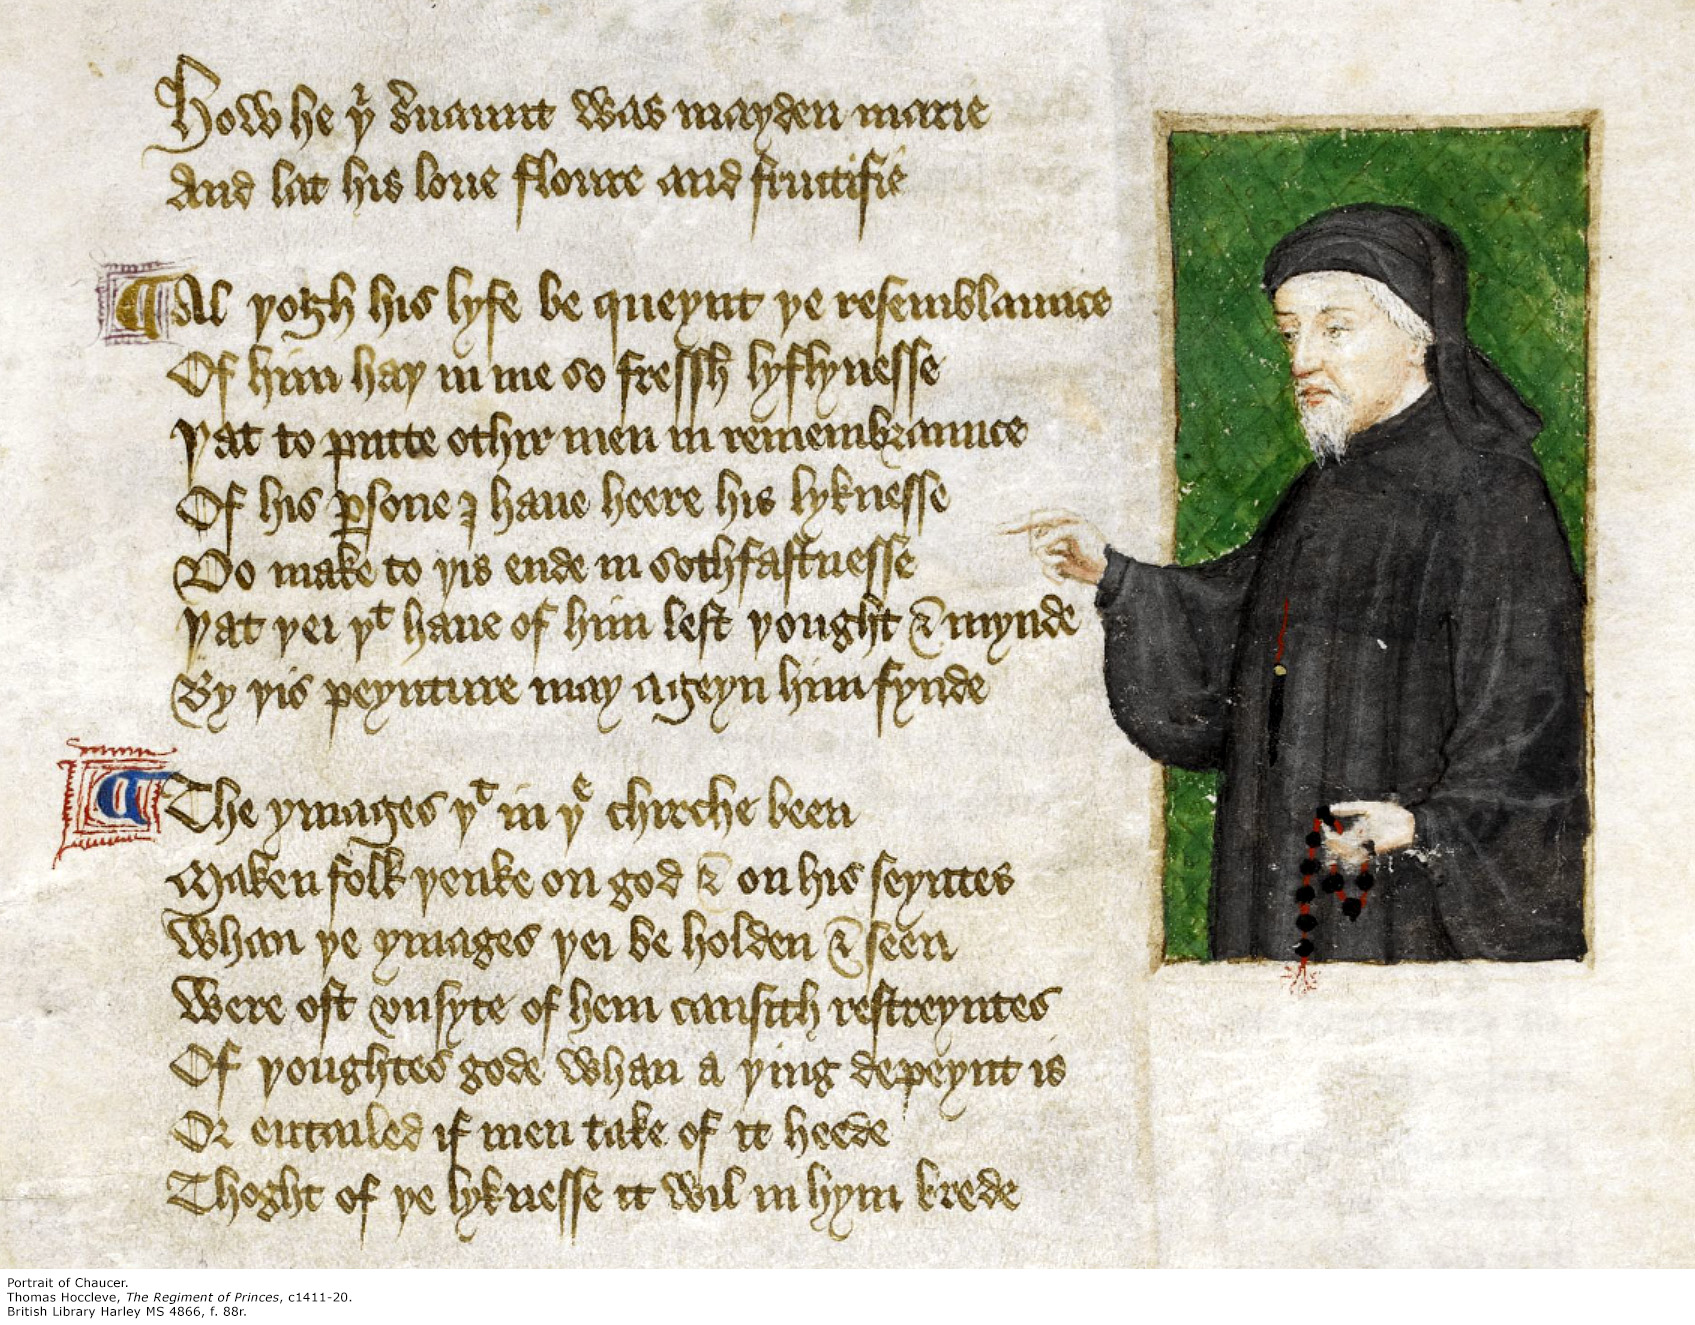 How he yͬ ẜuaunt was mayden marie
And lat his loue floure and fructifie
Al yogh his lyfe be queynt ye resemblaunce
Of him hay in me so fressh lyflynesse
Yat to putte othir men in remembraunce
Of his ꝑsone I haue heere his lyknesse
Do make to yis ende in sothfastnesse
Yat yei yᵗ haue of him left yought & mynde
By yis peynture may ageyn him fynde
The ymages yᵗ in yᵉ chirche been
Maken folk yenke on god & on his seyntes
Whan ye ymages yei be holden & seen
Were oft vnsyte of hem causith restreyntes
Of youghtes gode whan a ying depeynt is
Or entailed if men take of it heede
Thoght of ye lyknesse it wil in hym brede
Portrait of Chaucer.
Thomas Hoccleve, The Regiment of Princes, c1411-20.
British Library Harley MS 4866, f. 88r.